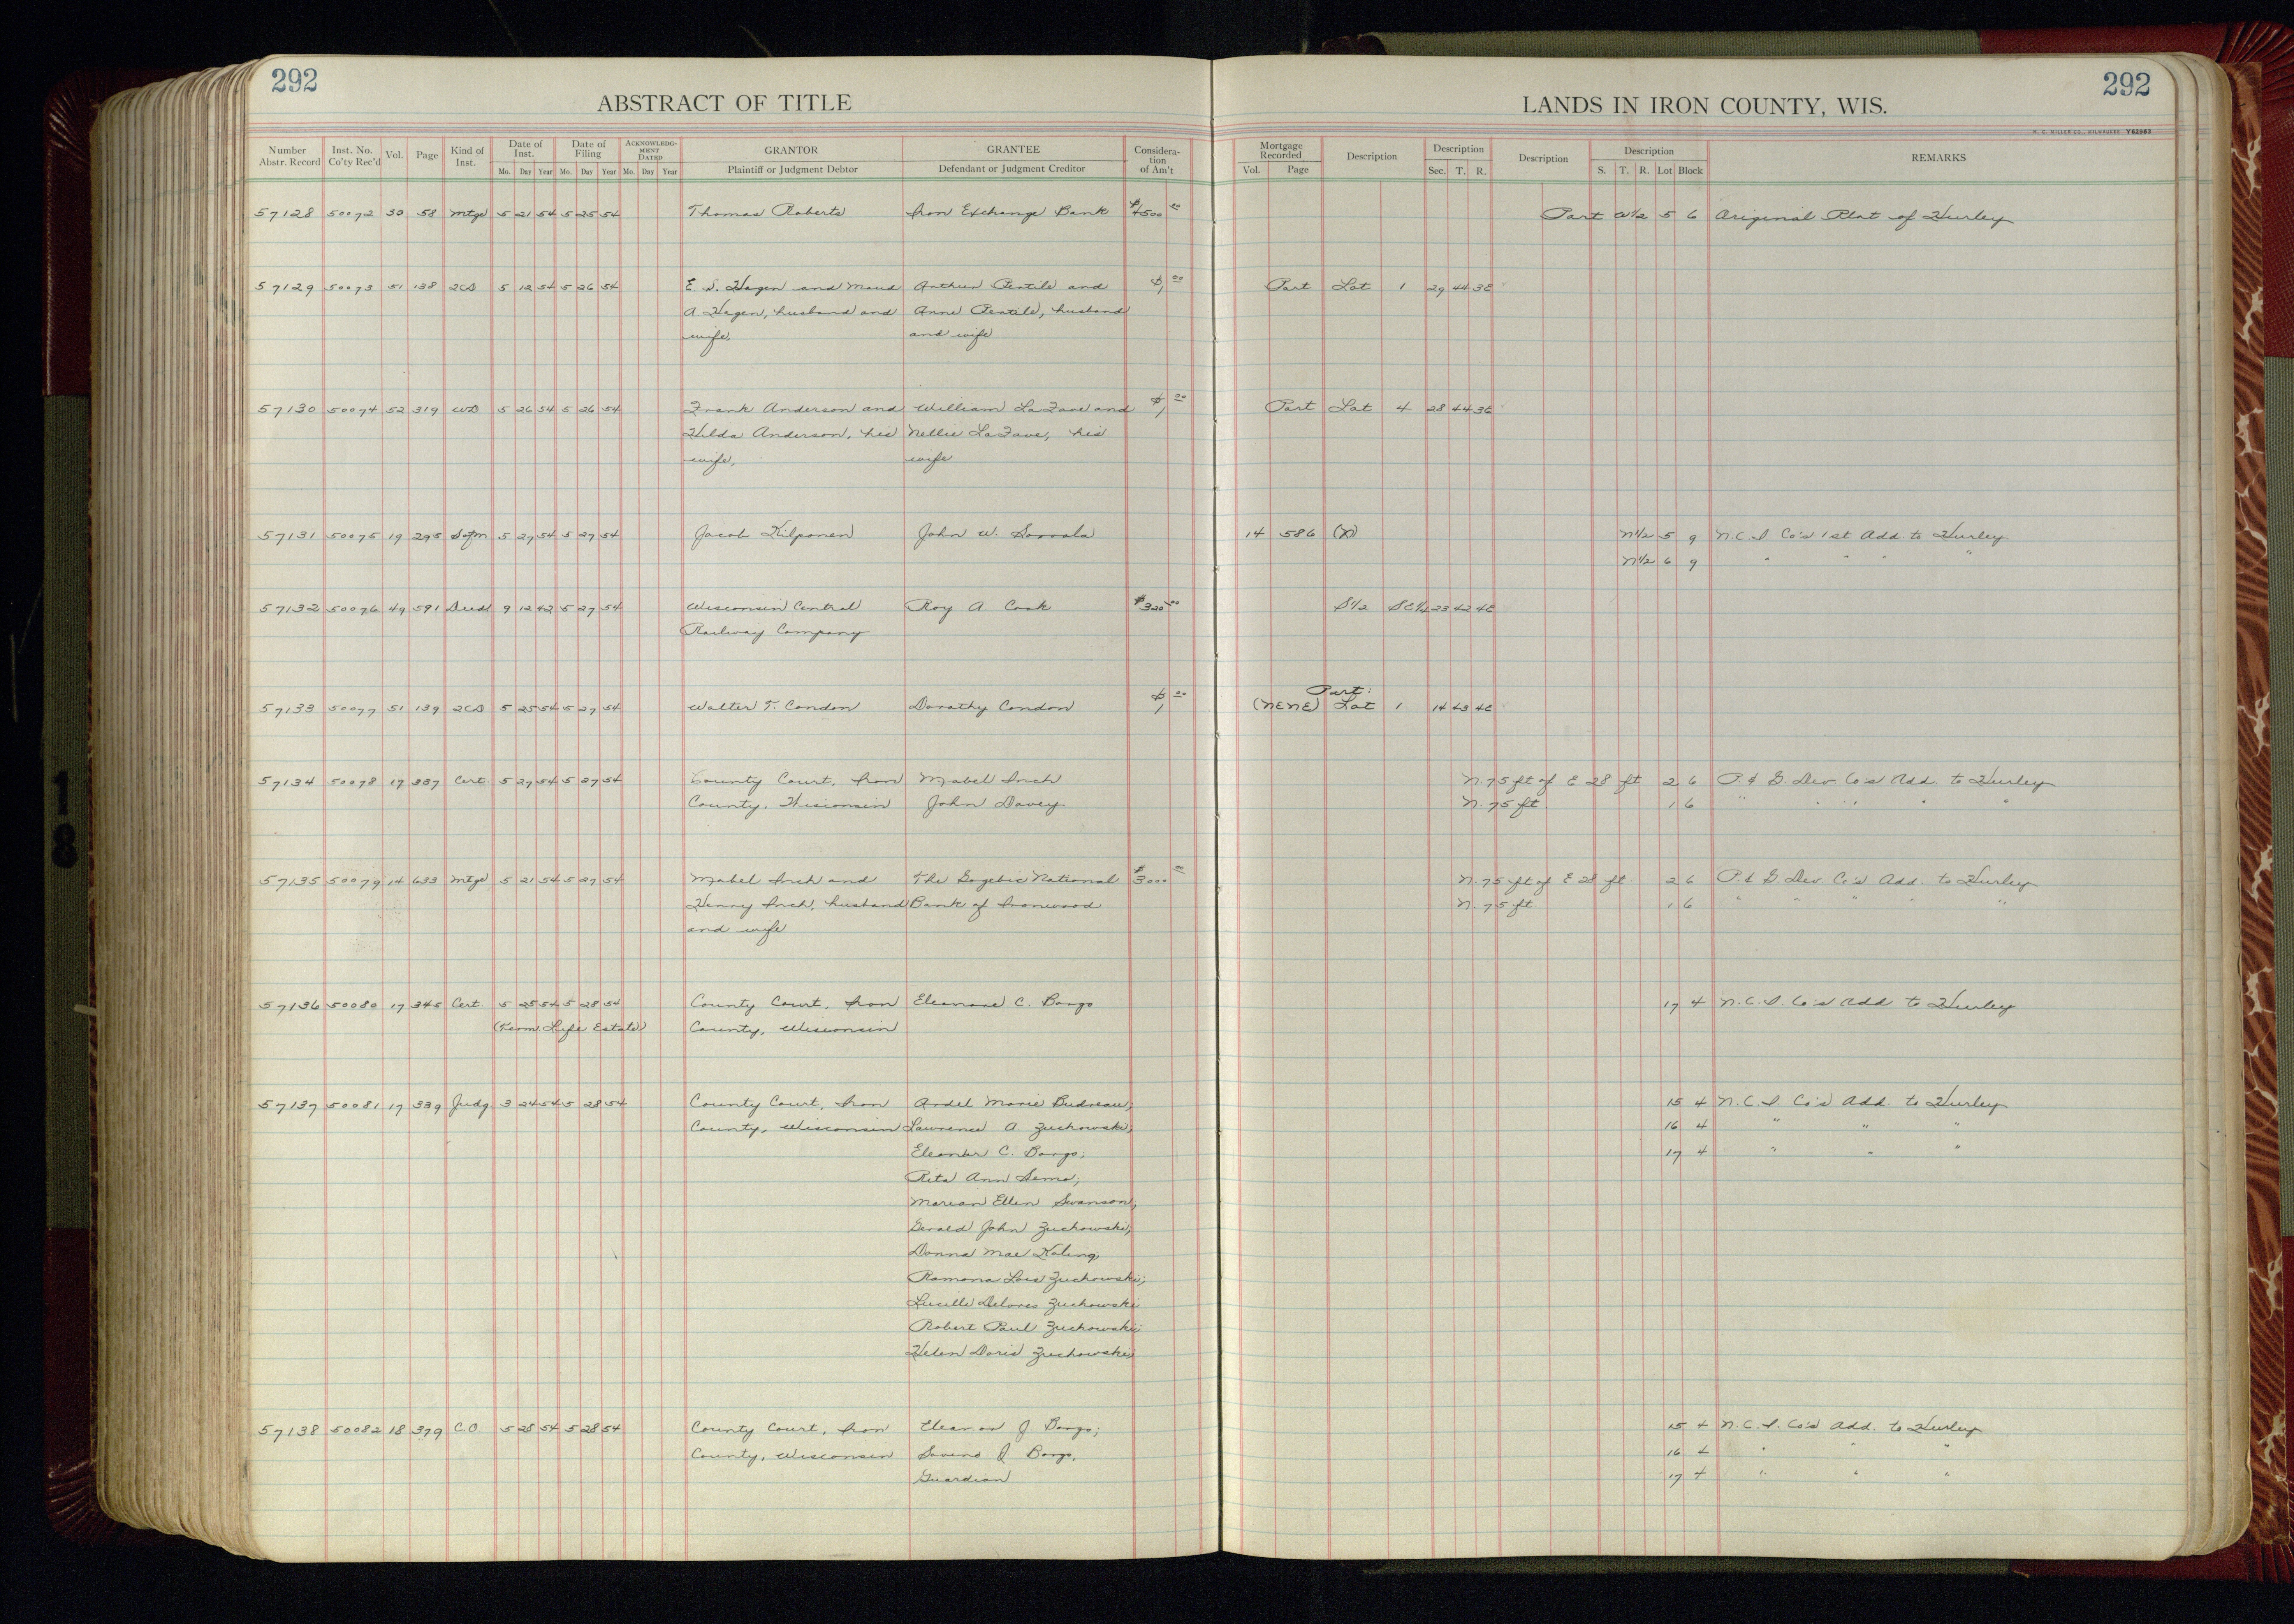 292
ABSTRACT OF TITLE
Number Abstr. Record
Inst. No. Co'ty Rec'd
Vol.
Page
Kind of Inst.
Date of Inst.
Mo. Day Year
Date of Filing
Mo. Day Year
ACKNOWLEDGMENT DATED
Mo. Day Year
GRANTOR
Plaintiff or Judgment Debtor
GRANTEE
Defendant or Judgment Creditor
Consideration of Am't
292
LANDS IN IRON COUNTY, WIS.
H. C. MILLER CO., MILWAUKEE Y62963
Mortgage Recorded
Vol. Page
Description
Description
Sec. T. R.
Description
Description
S. T. R. Lot Block
REMARKS
57128 50072 30 58 Mtge 5 21 54 5 25 54 Thomas Roberts Iron Exchange Bank $4500 00 Part W1/2 5 6 Original Plat of Hurley
57129 50073 51 138 2CD 5 12 54 5 26 54 E. S. Hagen and Maud Arthur Pentile and $1 00 Part Lot 1 29 44 3E
A Hagen, husband and Anne Pentile, husband
wife. and wife
57130 50074 52 319 WD 5 26 54 5 26 54 Frank Anderson and William LaFave and $1 00 Part Lot 4 28 44 3E
Hilda Anderson, his Nellie LaFave, his
wife, wife
57131 50075 19 295 Satm 5 27 54 5 27 54 Jacob Kilponen John W. 14 586 (X) N1/2 5 9 N.C.I. Co's 1st Add. to Hurley
N1/2 6 9 " " " "
57132 50076 49 591 Deed 9 12 42 5 27 54 Wisconsin Central Roy A Cook $320 00 S1/2 SE1/4 23 42 4E
Railway Company
57133 50077 51 139 2CD 5 25 54 5 27 54 Walter T. Condon Dorothy Condon $1 00 Part:
(NENE) Lot 1 14 43 4E
57134 50078 17 337 Cert. 5 27 54 5 27 54 County Court, Iron Mabel Inch N 75 ft of E 28 ft 2 6 P. & G Dev Co's Add. to Hurley
County, Wisconsin John Davey N. 75 ft 1 6 " " " " "
57135 50079 14 633 Mtge 5 21 54 5 27 54 Mabel Inch and The Gogebic National $3000 00 N. 75 ft of E 28 ft. 2 6 P. & G Dev Co's Add. to Hurley
Henry Inch, husband Bank of Ironwood N. 75 ft 1 6 " " " " "
and wife
57136 50080 17 345 Cert. 5 25 54 5 28 54 County Court, Iron Eleanore C. Bongo 17 4 N.C.I. Co's Add to Hurley
(Term. Life Estate) County, Wisconsin
57137 50081 17 339 Judg. 3 24 54 5 28 54 County Court, Iron Ardel Marie Budreau; 15 4 N.C.I. Co's Add. to Hurley
County, Wisconsin Lawrence A Zuchowski; 16 4 " " "
Eleanor C. Bongo; 17 4 " " "
Rita Ann
Marian Ellen Swanson;
Gerald John Zuchowski;
Donna Mae
Ramona Lois Zuchowski;
Lucille Delores Zuchowski
Robert Paul Zuchowski;
Helen Doris Zuchowski;
57138 50082 18 379 C.O 5 28 54 5 28 54 County Court, Iron Eleanor J. Bongo; 15 4 N.C.I. Co's Add. to Hurley
County, Wisconsin Savino J. Bongo, 16 4 " " "
Guardian 17 4 " " "
18